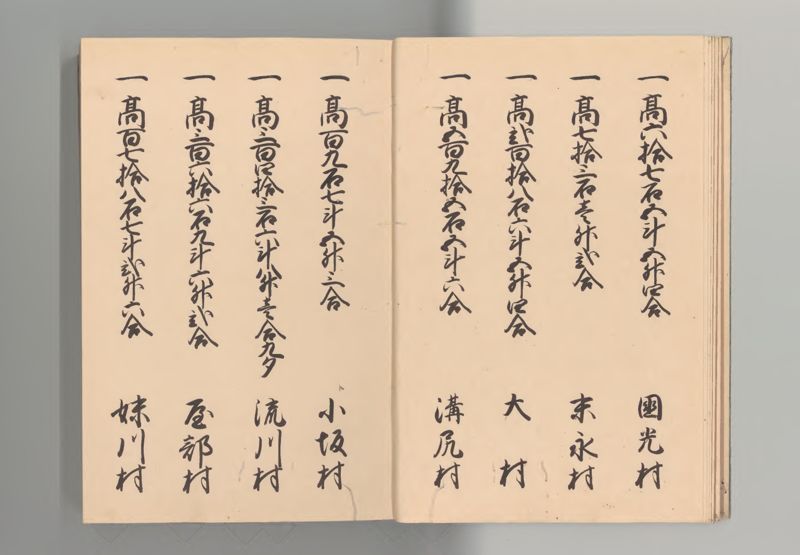 一高六拾七石五斗五升四合 國光村
一高七拾三石壱升弐合 末永村
一高弐百拾八石六斗五升四合 大村
一高五百九拾五石五斗六合 溝尻村
一高百九石七斗五升三合 小坂村
一高三百四拾三石六斗八升壱合九夕 流川村
一高三百六拾六石九斗六升弐合 屋部村
一高百七拾八石七斗弐升六合 妹川村